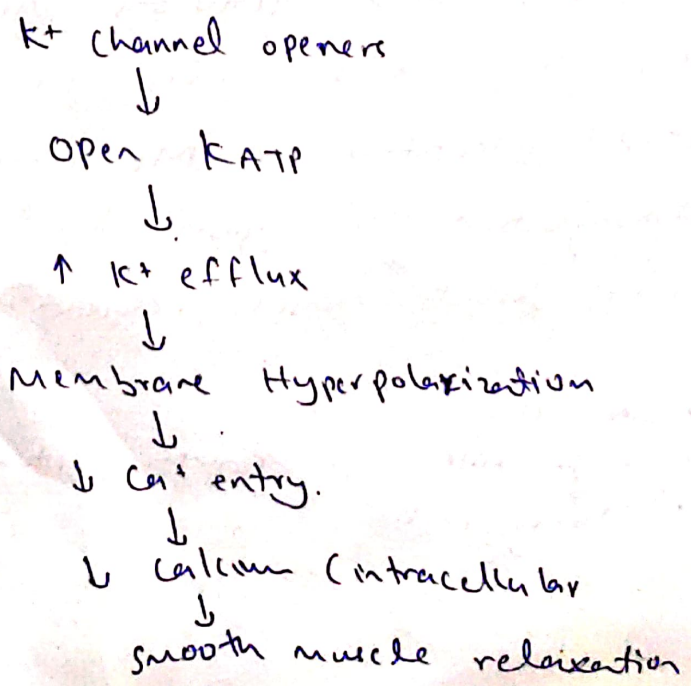 K+ Channel openers
↓
Open KATP
↓
↑ K+ efflux
↓
Membrane Hyperpolarization
↓
↓ Ca+ entry.
↓
↓ Calcium (intracellular
↓
smooth muscle relaixation